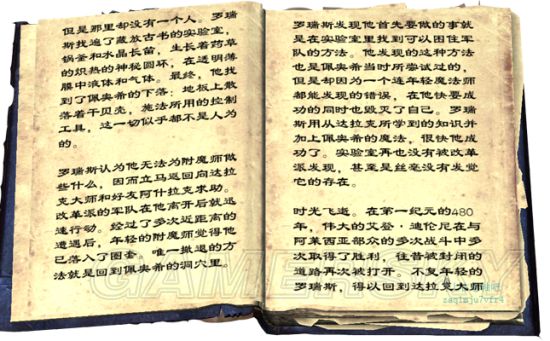 但是那里却没有一个人。罗瑞
斯找遍了藏放古书的实验室,
锅釜和水晶长笛,生长着药草
的炽热的神秘圆坏,在透明薄
膜中液体和气体。最终,他找
到了佩奥希的下落:地板上散
落着干贝壳,施法所用的控制
工具,这一切似乎都不是人为
的。
罗瑞斯认为他无法为附魔师做
些什么,因而立马返回向达拉
克大师和好友阿什拉克求助。
改革派的军队在他离开后就迅
速行动。经过了多次近距离的
遭遇后,年轻的附魔师觉得他
已落入了圈套,唯一撤退的方
法就是回到佩奥希的洞穴里。
罗瑞斯发现他首先要做的事就
是在实验室里找到可以困住军
队的方法。他发现的这种方法
也是佩奥希当时所尝试过的,
但是却因为一个连年轻魔法师
都能发现的错误,在他快要成
功的同时也毁灭了自己。罗瑞
斯用从达拉克所学到的知识并
加上佩奥希的魔法,很快他成
功了。实验室再也没有被改革
派发现,甚至是丝毫没有发觉
它的存在。
时光飞逝。在第一纪元的480
年,伟大的艾登·迪伦尼在与
阿莱西亚部众的多次战斗中多
次取得了胜利,往昔被封闭的
道路再次被打开。不复年轻的
罗瑞斯,得以回到达拉克大师
GAMERSKY
zaq1mju7vfr4